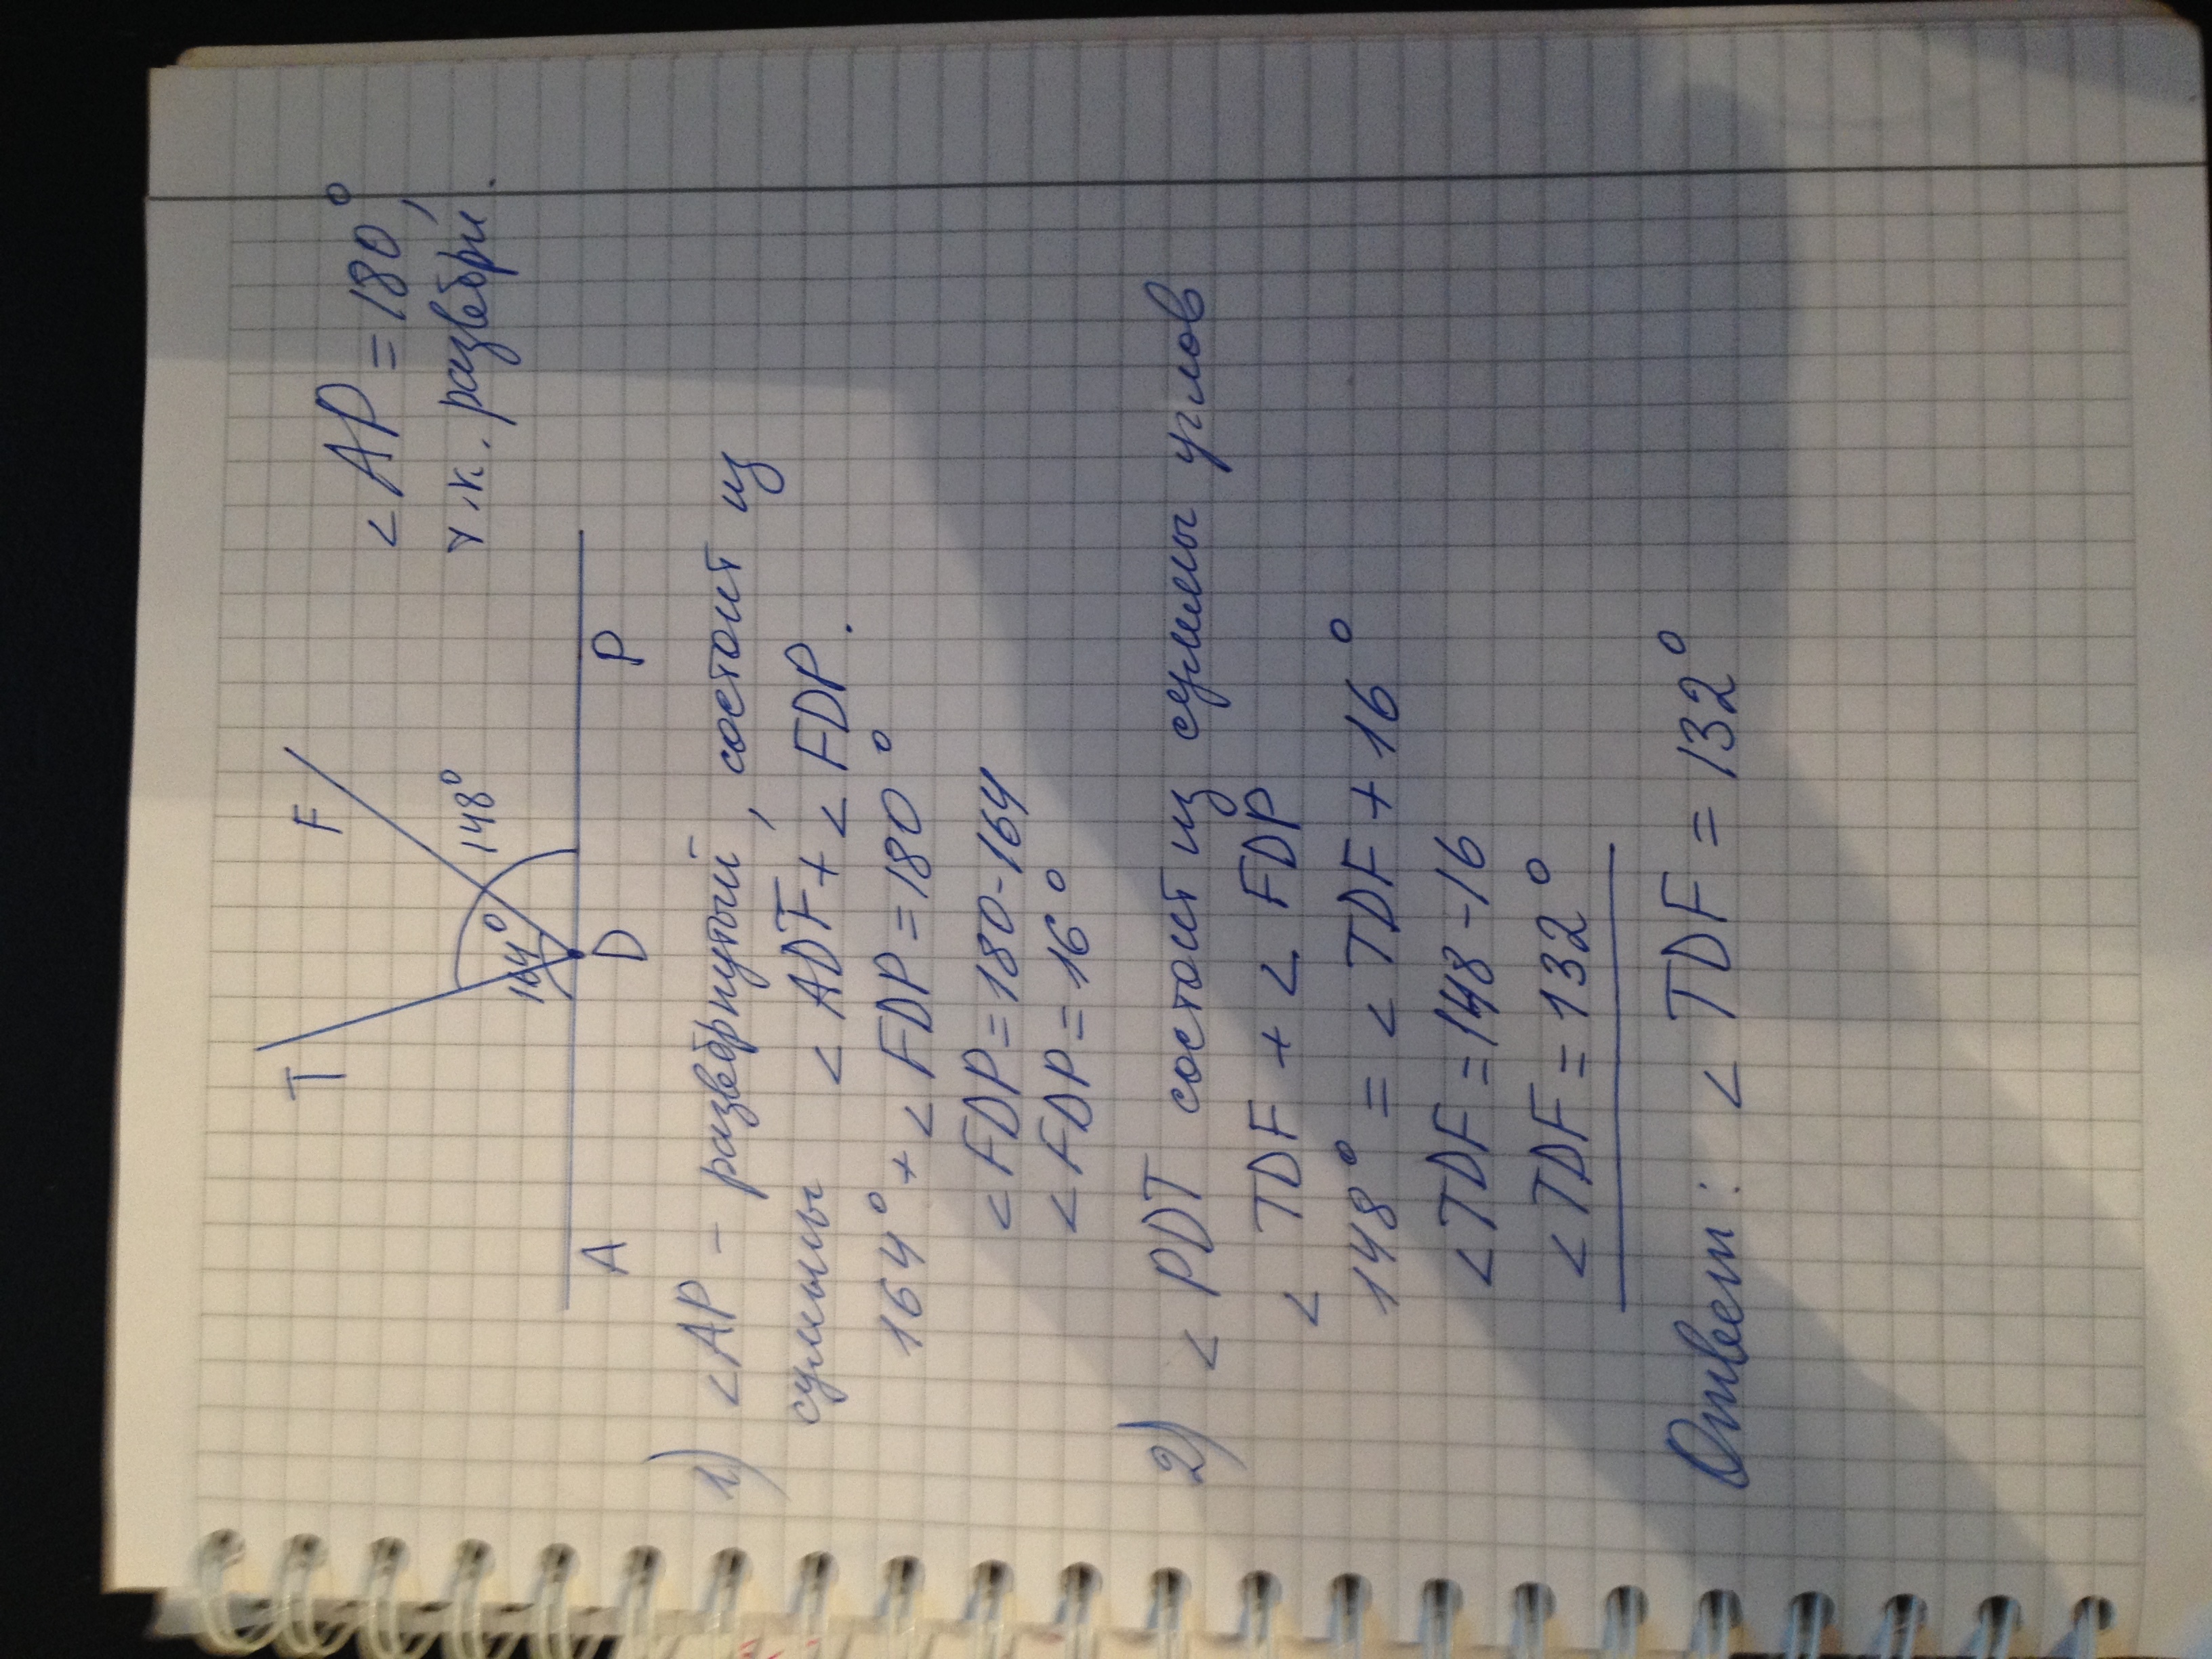 < AP = 180°,
т.к. развёрн.
T
F
148°
164°
A
D
P
1) < AP - развёрнутый, состоит из
суммы < ADF + < FDP.
164° + < FDP = 180°
< FDP = 180 - 164
< FDP = 16°
2) < PDT состоит из суммы углов
< TDF + < FDP
148° = < TDF + 16°
< TDF = 148 - 16
< TDF = 132°
Ответ: < TDF = 132°